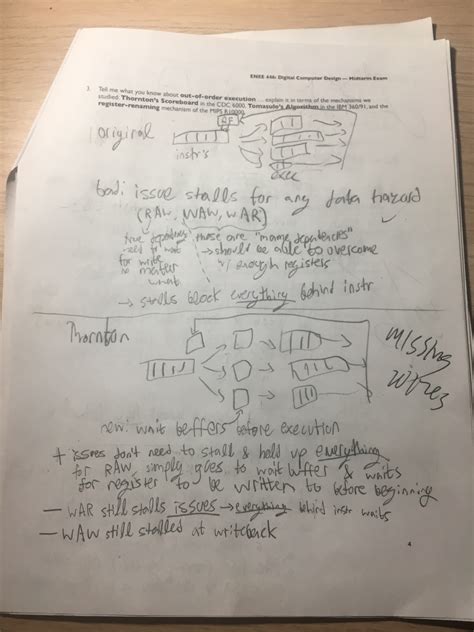 ENEE 446: Digital Computer Design — Midterm Exam
3. Tell me what you know about out-of-order execution ... explain it in terms of the mechanisms we
studied: Thornton's Scoreboard in the CDC 6000, Tomasulo's Algorithm in the IBM 360/91, and the
register-renaming mechanism of the MIPS R10000.
Original
RF
instr's
exec
bad: issue stalls for any data hazard
(RAW, WAW, WAR)
true dependency
need to wait
for writes
no matter
what
these are "name dependencies"
→ should be able to overcome
w/ enough registers
→ stalls block everything behind instr.
Thornton
missing
wires
new: wait buffers before execution
+ issues don't need to stall & hold up everything
for RAW, simply goes to wait buffer & waits
for register to be written to before beginning
— WAR still stalls issues → everything behind instr waits
— WAW still stalled at writeback
4